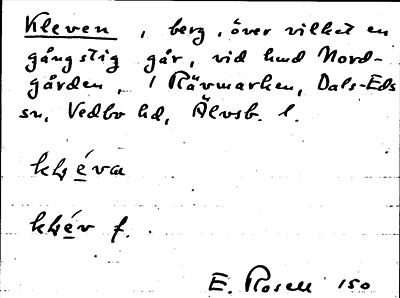 Kleven, berg, över vilket en
gångstig går, vid hmd Nord-
gården, i Rävmarken, Dals-Eds
sn, Vedbo hd, Älvsb. l.
E. Rosell 150